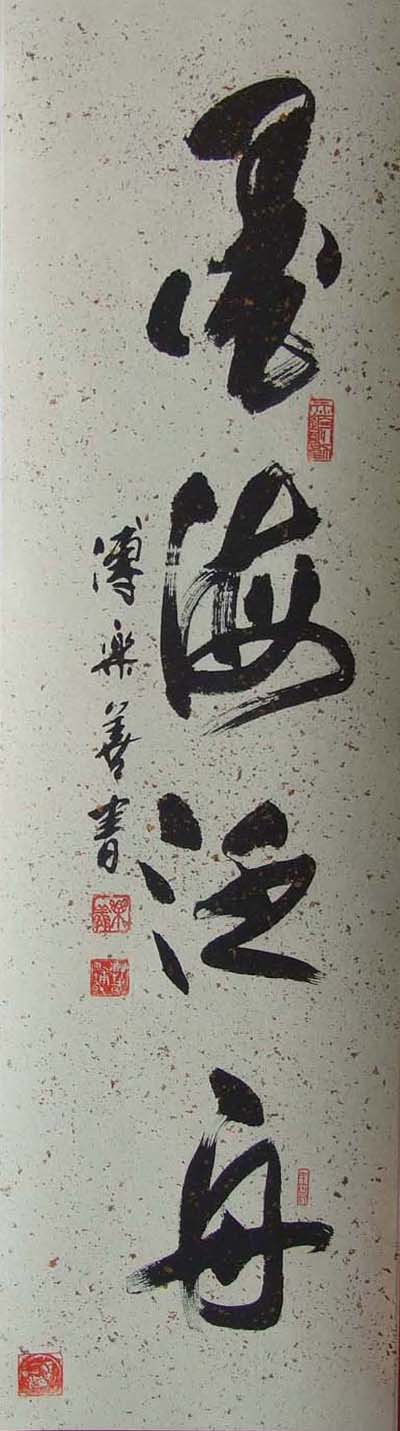 墨海泛舟
傅樂善書